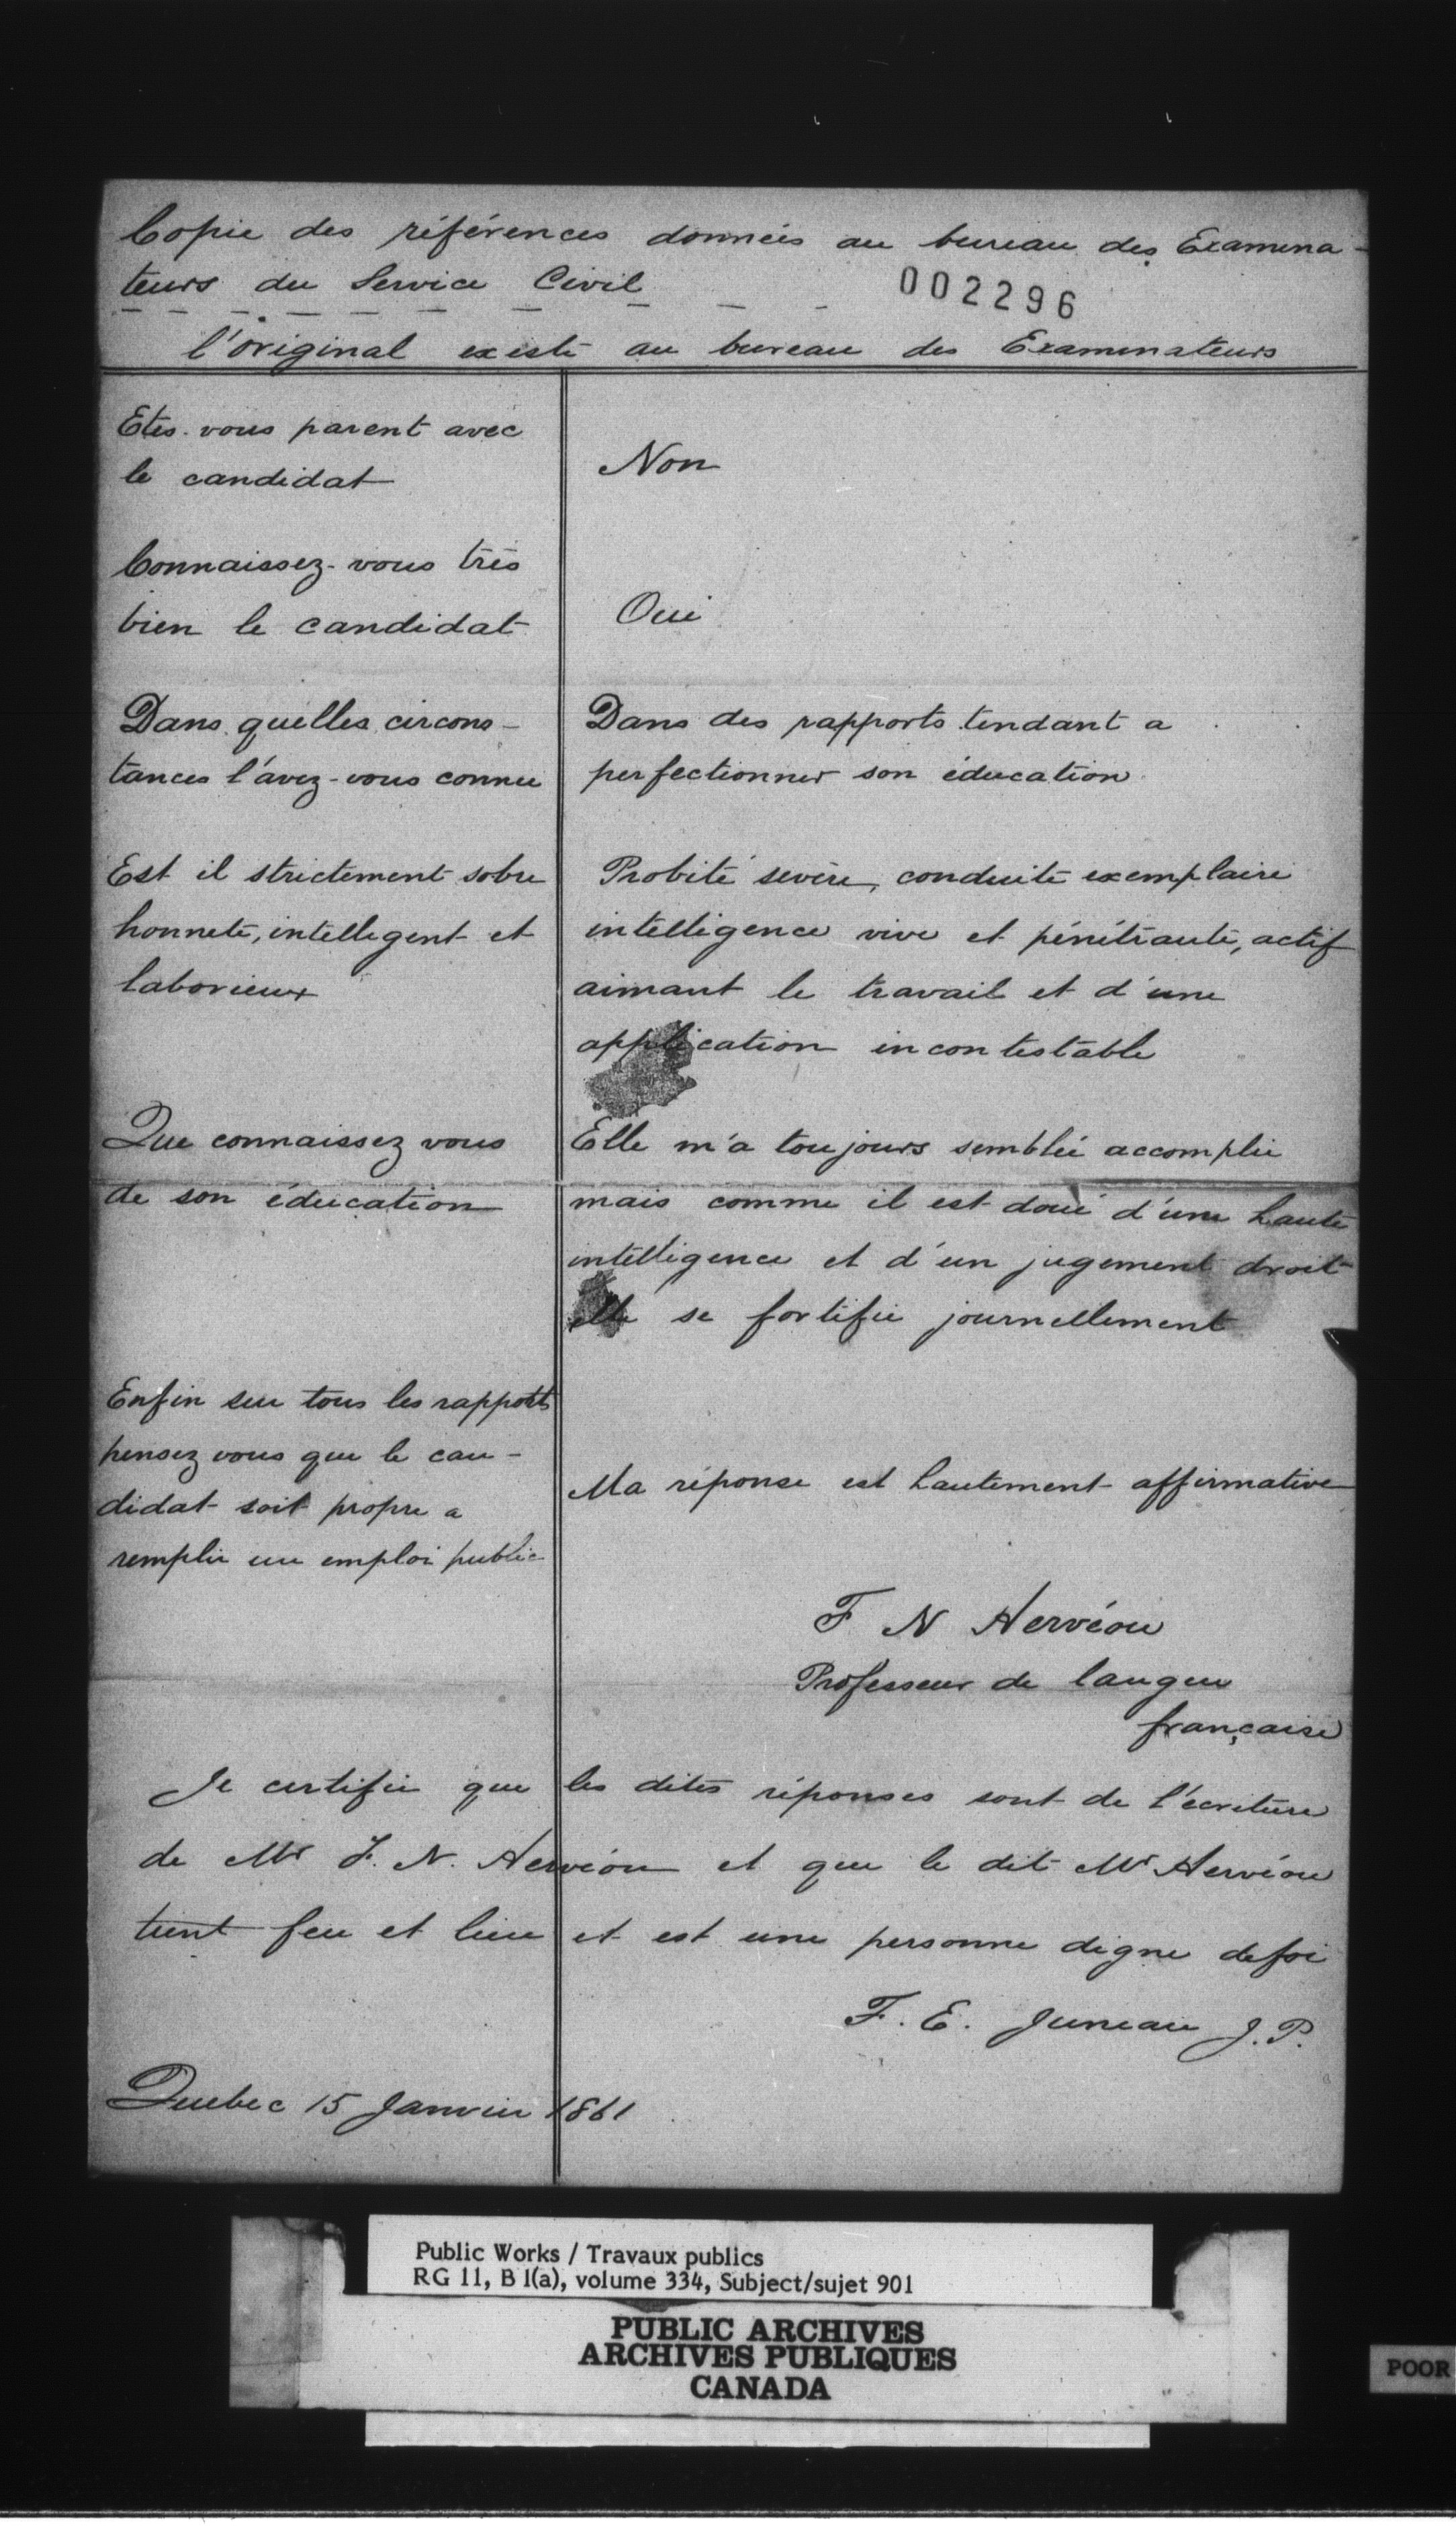 Copie des références données au bureau des Examina-
teurs du Service Civil
002296
l'original existe au bureau des Examinateurs
Etes-vous parent avec
le candidat
Non
Connaissez-vous très
bien le candidat
Oui
Dans quelles circons-
tances l'avez-vous connu
Dans des rapports tendant a
perfectionner son éducation
Est il strictement sobre
honnete, intelligent et
laborieux
Probité sevère, conduite exemplaire
intelligence vive et pénétrante, actif
aimant le travail et d'une
application incontestable
Que connaissez vous
de son éducation
Elle m'a toujours semblée accomplie
mais comme il est doué d'une haute
intelligence et d'un jugement droit
elle se fortifie journellement
Enfin sur tous les rapports
pensez vous que le can-
didat soit propre a
remplir un emploi public
Ma réponse est hautement affirmative
F N Hervéou
Professeur de langue
française
Je certifie que les dites réponses sont de l'écriture
de Mr F. N. Hervéou et que le dit Mr Hervéou
tient feu et lieu et est une personne digne de foi
F. E. Juneau J.P.
Quebec 15 Janvier 1861
Public Works / Travaux publics
RG 11, B 1(a), volume 334, Subject/sujet 901
PUBLIC ARCHIVES
ARCHIVES PUBLIQUES
CANADA
POOR